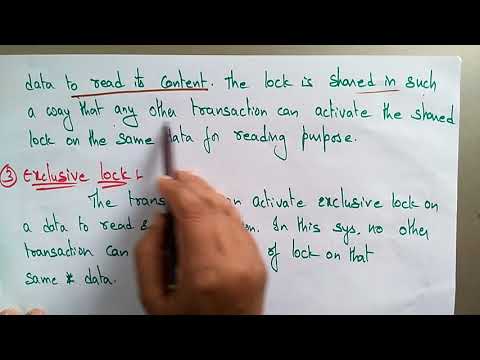 data to read its content. The lock is shared in such
a way that any other transaction can activate the shared
lock on the same data for reading purpose.
③ Exclusive lock
The trans an activate exclusive lock on
a data to read & ion. In this sys. no other
transaction can of lock on that
same data.